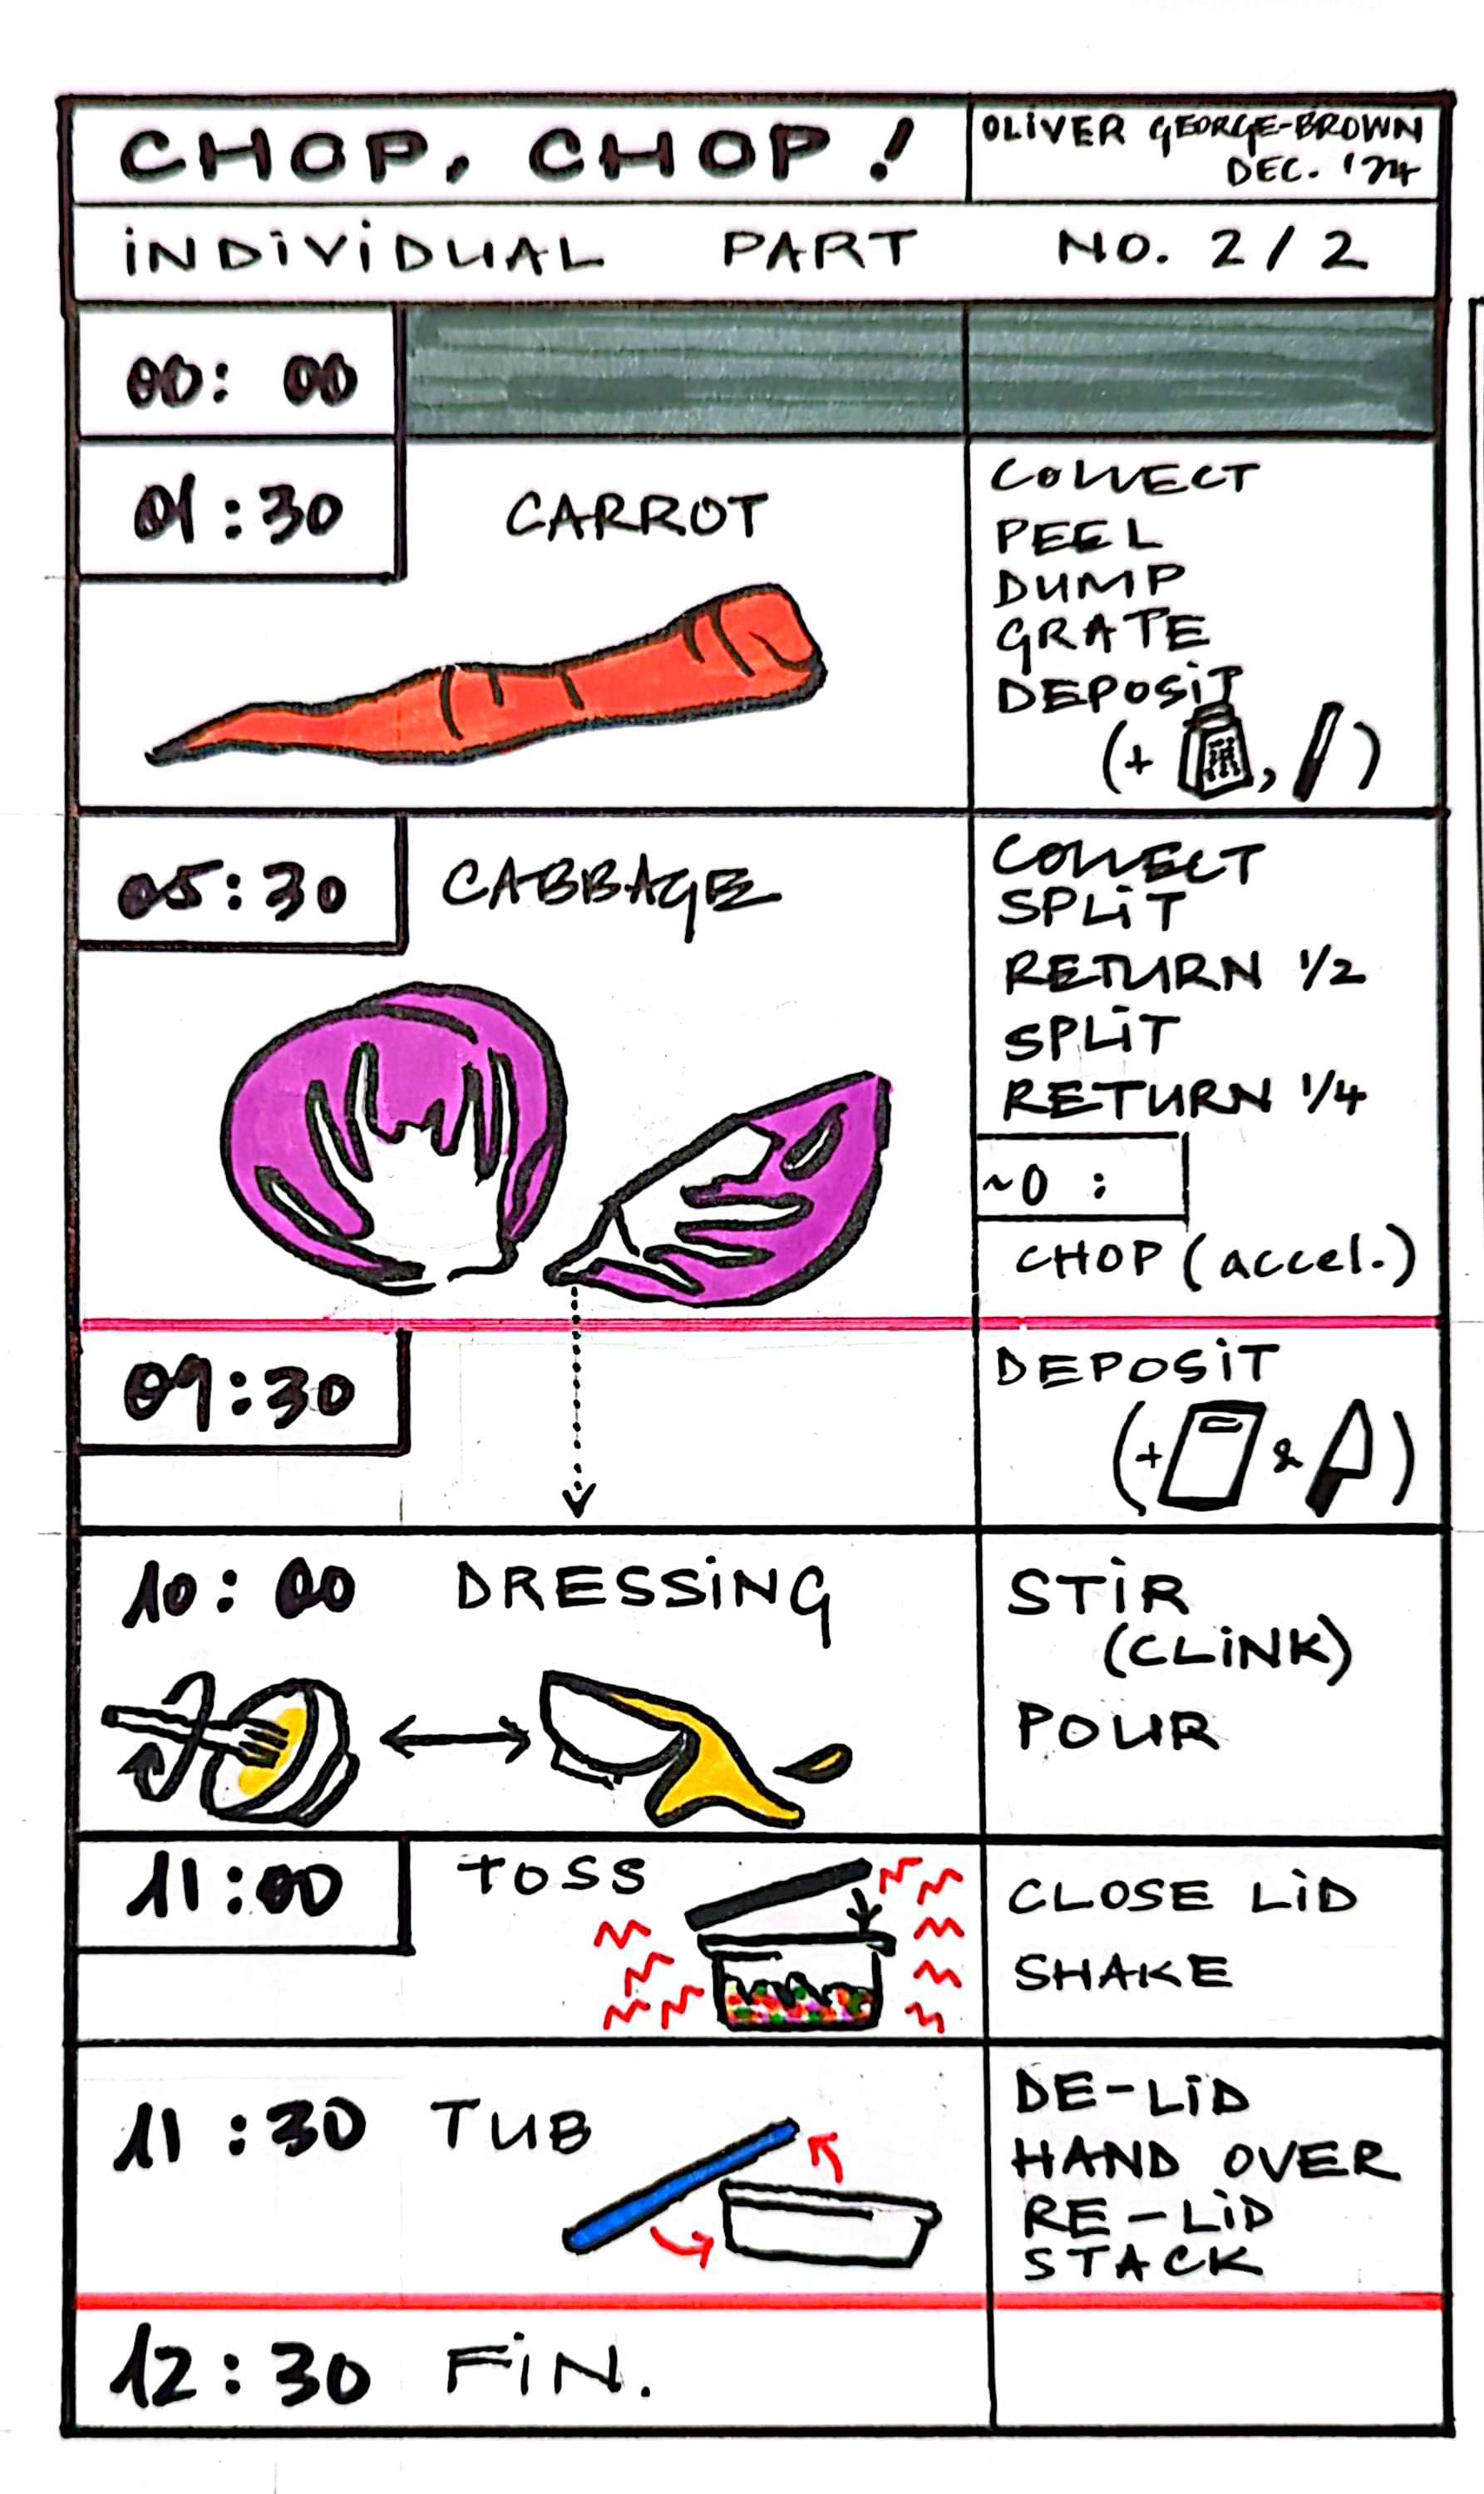 CHOP, CHOP!
OLIVER GEORGE-BROWN
DEC. '24
INDIVIDUAL PART NO. 2/2
00:00
01:30
CARROT
COLLECT
PEEL
DUMP
GRATE
DEPOSIT
(+ , )
05:30
CABBAGE
COLLECT
SPLIT
RETURN 1/2
SPLIT
RETURN 1/4
~0 :
CHOP (accel.)
09:30
DEPOSIT
(+ & )
10:00 DRESSING
STIR
(CLINK)
POUR
11:00
TOSS
CLOSE LID
SHAKE
11:30 TUB
DE-LID
HAND OVER
RE-LID
STACK
12:30 FIN.